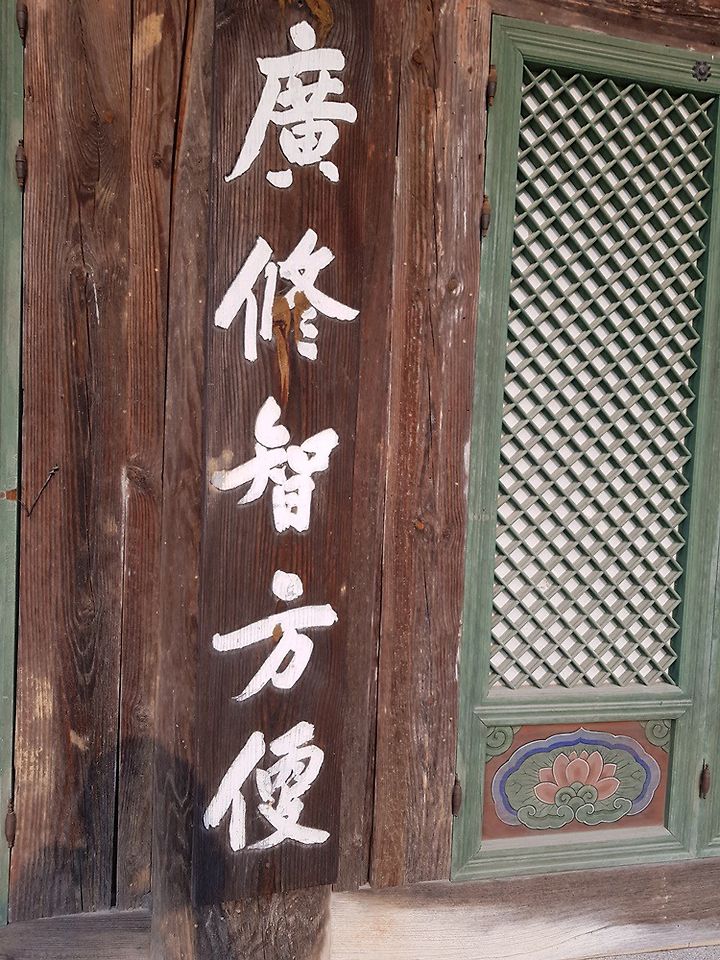 廣修智方便